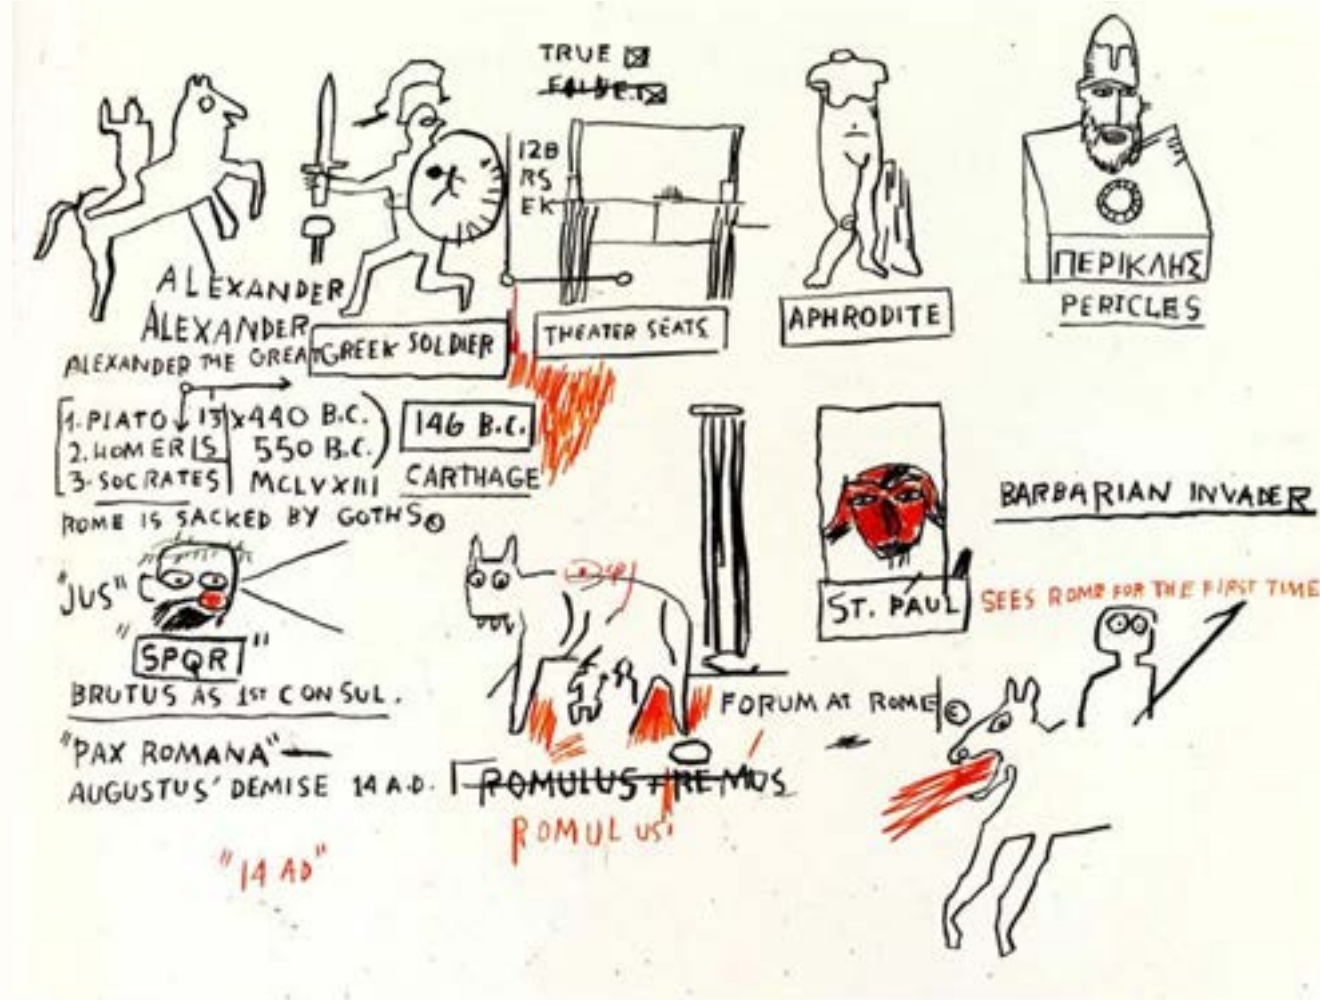 TRUE
FALSE.
128
RS
EK
ALEXANDER
ALEXANDER
ALEXANDER THE GREAT
GREEK SOLDIER
THEATER SEATS
APHRODITE
ΠΕΡΙΚΛΗΣ
PERICLES
1. PLATO 13 x440 B.C.
2. HOMER IS 550 B.C.
3. SOCRATES MCLVXIII
146 B.C.
CARTHAGE
ROME IS SACKED BY GOTHS©
"JUS"
"SPQR"
BRUTUS AS 1ST CONSUL.
"PAX ROMANA"—
AUGUSTUS' DEMISE 14 A.D.
"14 AD"
ROMULUS + REMUS
ROMULUS
FORUM AT ROME ©
ST. PAUL
BARBARIAN INVADER
SEES ROME FOR THE FIRST TIME